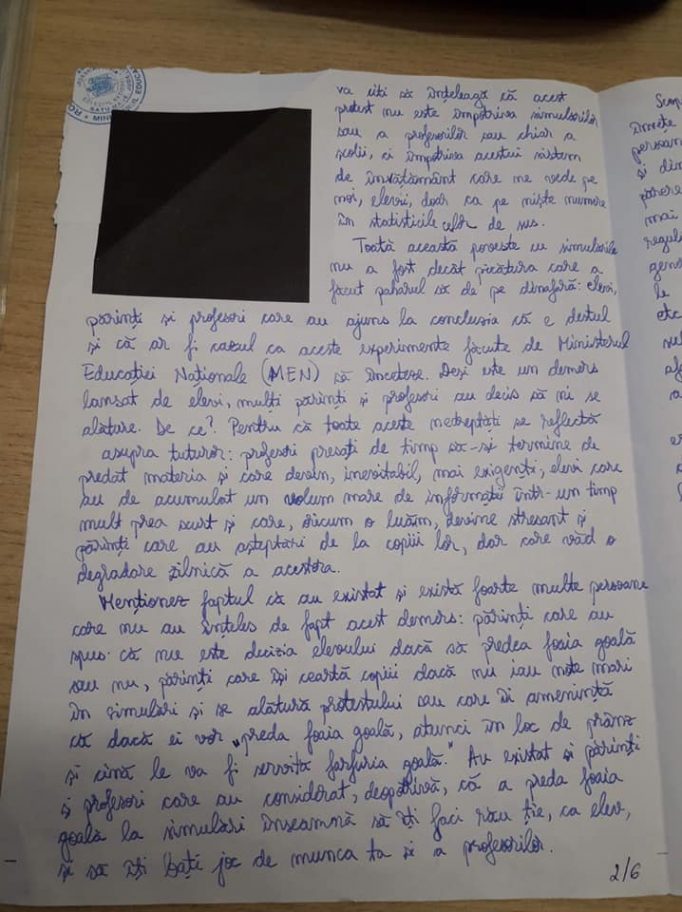 va citi să înțeleagă că acest
protest nu este împotriva simulărilor
sau a profesorilor sau chiar a
școlii, ci împotriva acestui sistem
de învățământ care ne vede pe
noi, elevii, doar ca pe niște numere
în statisticile celor de sus.
Toată această poveste cu simulările
nu a fost decât picătura care a
făcut paharul să dea pe dinafară: elevi,
părinți și profesori care au ajuns la concluzia că e destul
și că ar fi cazul ca aceste experimente făcute de Ministerul
Educației Naționale (MEN) să înceteze. Deși este un demers
lansat de elevi, mulți părinți și profesori au decis să ni se
alăture. De ce? Pentru că toate aceste nedreptăți se reflectă
asupra tuturor: profesori presați de timp să-și termine de
predat materia și care devin, inevitabil, mai exigenți, elevi care
au de acumulat un volum mare de informații într-un timp
mult prea scurt și care, oricum o luăm, devine stresant și
părinți care au așteptări de la copiii lor, dar care văd o
degradare zilnică a acestora.
Menționez faptul că au existat și există foarte multe persoane
care nu au înțeles de fapt acest demers: părinți care au
spus că nu este decizia elevului dacă să predea foaia goală
sau nu, părinți care își ceartă copiii dacă nu iau note mari
în simulări și se alătură protestului sau care îi amenință
că dacă ei vor „preda foaia goală, atunci în loc de prânz
și cină le va fi servită farfuria goală." Au existat și părinți
și profesori care au considerat, deopotrivă, că a preda foaia
goală la simulări înseamnă să îți faci rău ție, ca elev,
și să îți bați joc de munca ta și a profesorilor.
2/6